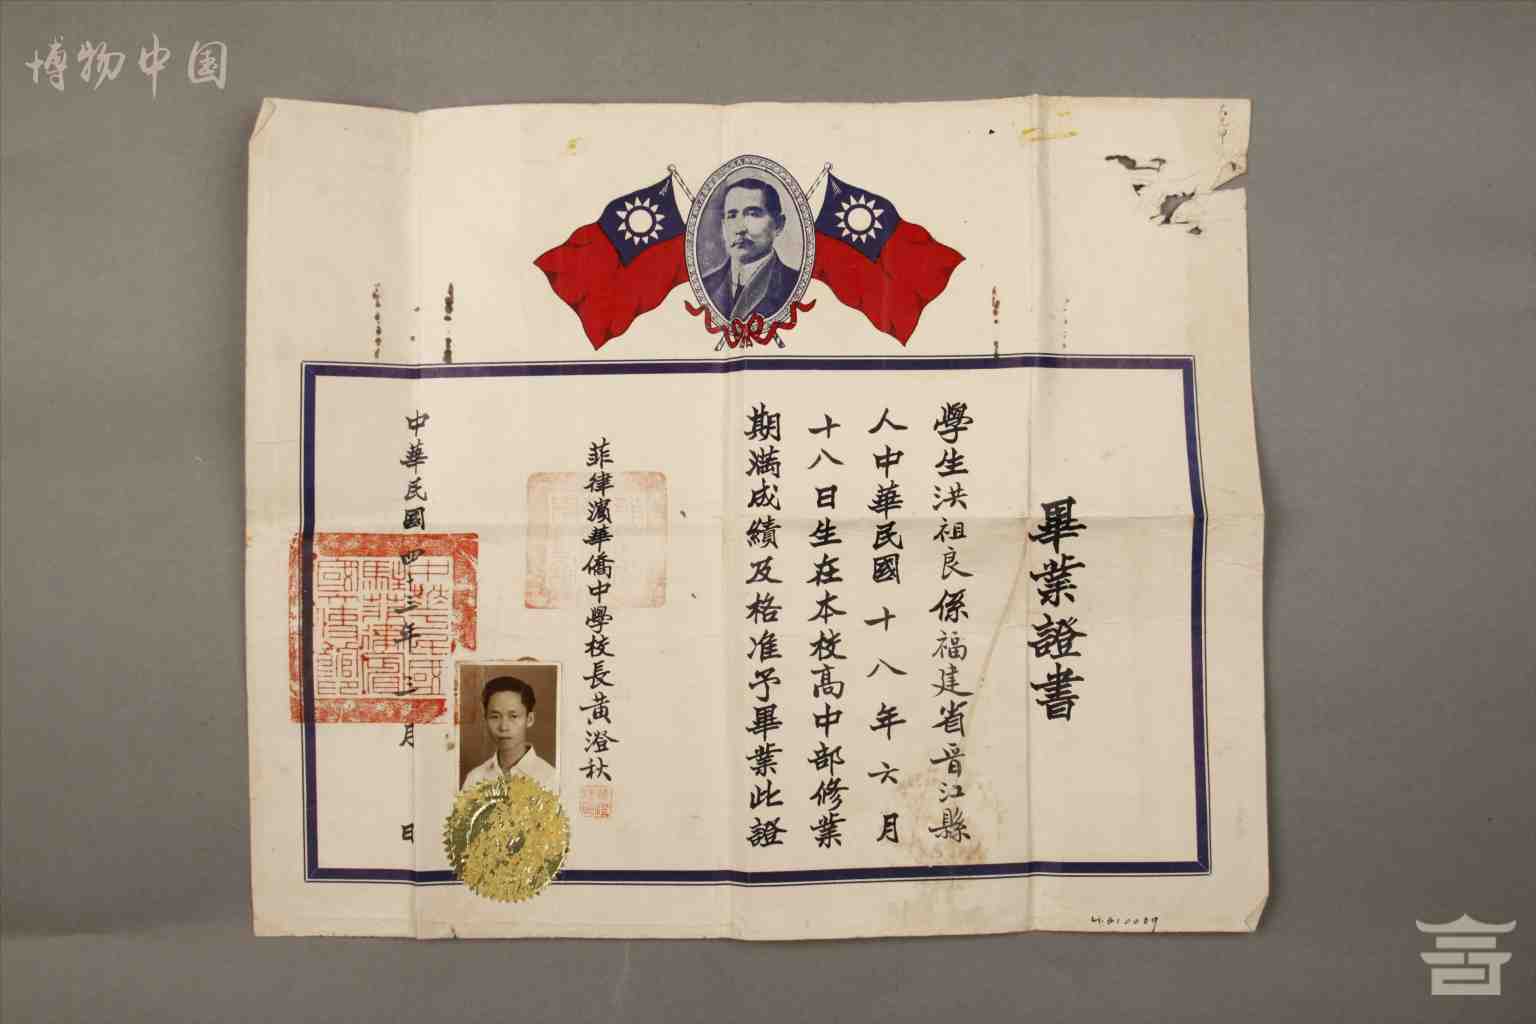 博物中国
畢業證書
學生洪祖良係福建省晉江縣
人中華民國十八年六月
十八日生在本校高中部修業
期滿成績及格准予畢業此證
菲律濱華僑中學校長黃澄秋
中華民國四十三年三月 日
中華民國
駐菲律賓
國大使館